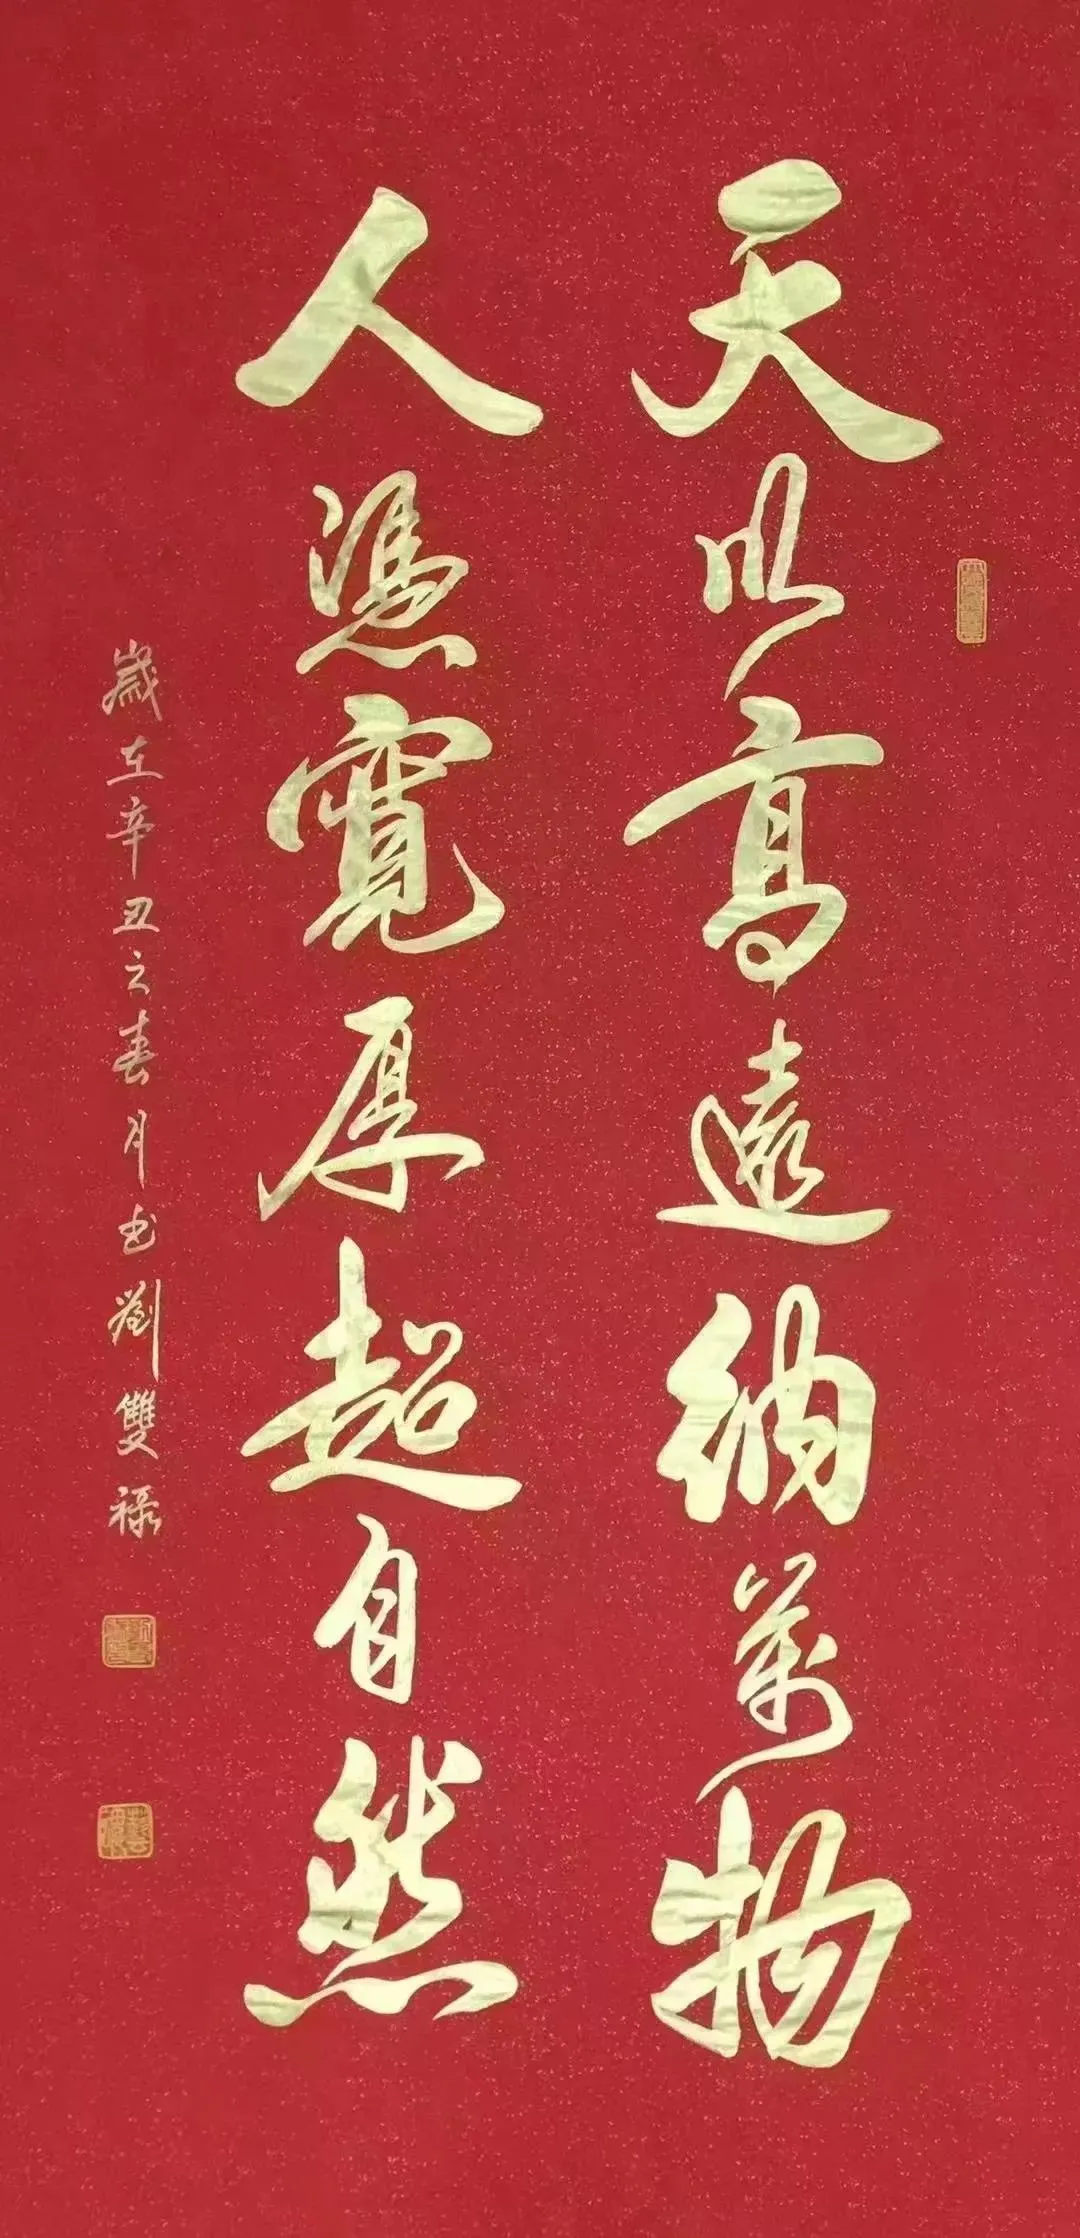 天以高遠納萬物
人憑寬厚超自然
歲在辛丑之春月書劉雙祿